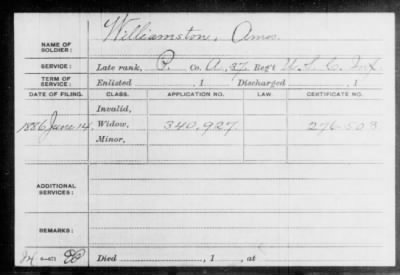 NAME OF SOLDIER: Williamston, Amos
SERVICE: Late rank, P. Co. A, 27 Reg't U.S.C. Inf.
TERM OF SERVICE: Enlisted , 1 Discharged , 1
DATE OF FILING. CLASS. APPLICATION NO. LAW. CERTIFICATE NO.
Invalid,
1886 June 14, Widow, 340,927. 276.503
Minor,
ADDITIONAL SERVICES:
REMARKS:
Died , 1 , at